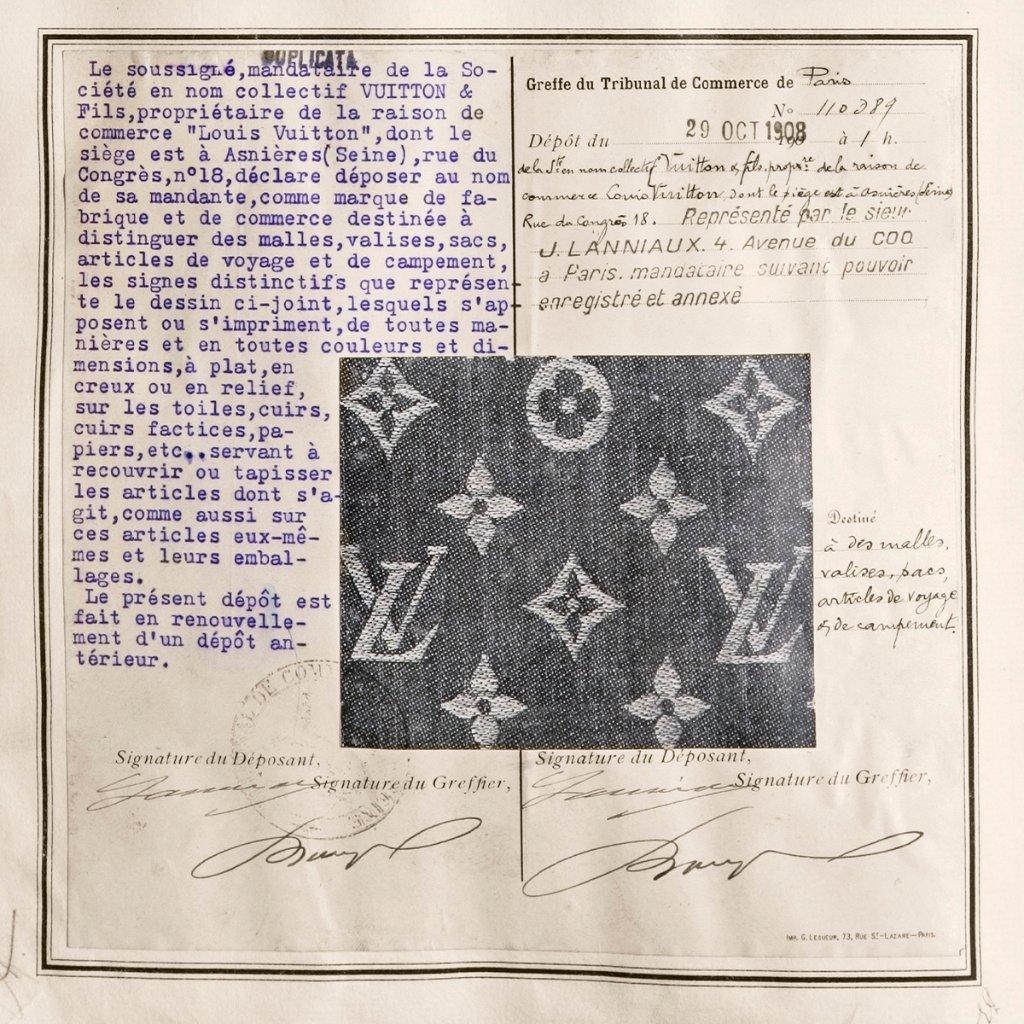 DUPLICATA
Le soussigné,mandataire de la So-
ciété en nom collectif VUITTON &
Fils,propriétaire de la raison de
commerce "Louis Vuitton",dont le
siège est à Asnières(Seine),rue du
Congrès,n°18,déclare déposer au nom
de sa mandante,comme marque de fa-
brique et de commerce destinée à
distinguer des malles,valises,sacs,
articles de voyage et de campement,
les signes distinctifs que représen-
te le dessin ci-joint,lesquels s'ap-
posent ou s'impriment,de toutes ma-
nières et en toutes couleurs et di-
mensions,à plat,en
creux ou en relief,
sur les toiles,cuirs,
cuirs factices,pa-
piers,etc..servant à
recouvrir ou tapisser
les articles dont s'a-
git,comme aussi sur
ces articles eux-mê-
mes et leurs embal-
lages.
Le présent dépôt est
fait en renouvelle-
ment d'un dépôt an-
térieur.
Signature du Déposant,
Signature du Greffier,
Greffe du Tribunal de Commerce de Paris
N° 110389
Dépôt du 29 OCT 1908 à 1 h.
de la Sté en nom collectif Vuitton & fils, propre. de la raison de
commerce Louis Vuitton, dont le siège est à Asnières (Seine)
Rue du Congrès 18. Représenté par le sieur
J. LANNIAUX. 4. Avenue du COQ
à Paris. mandataire suivant pouvoir
enregistré et annexé
LV LV
Destiné
à des malles,
valises, sacs,
articles de voyage
& de campement.
Signature du Déposant,
Signature du Greffier,
IMP. G. LEQUEUR, 73, RUE St-LAZARE—PARIS.